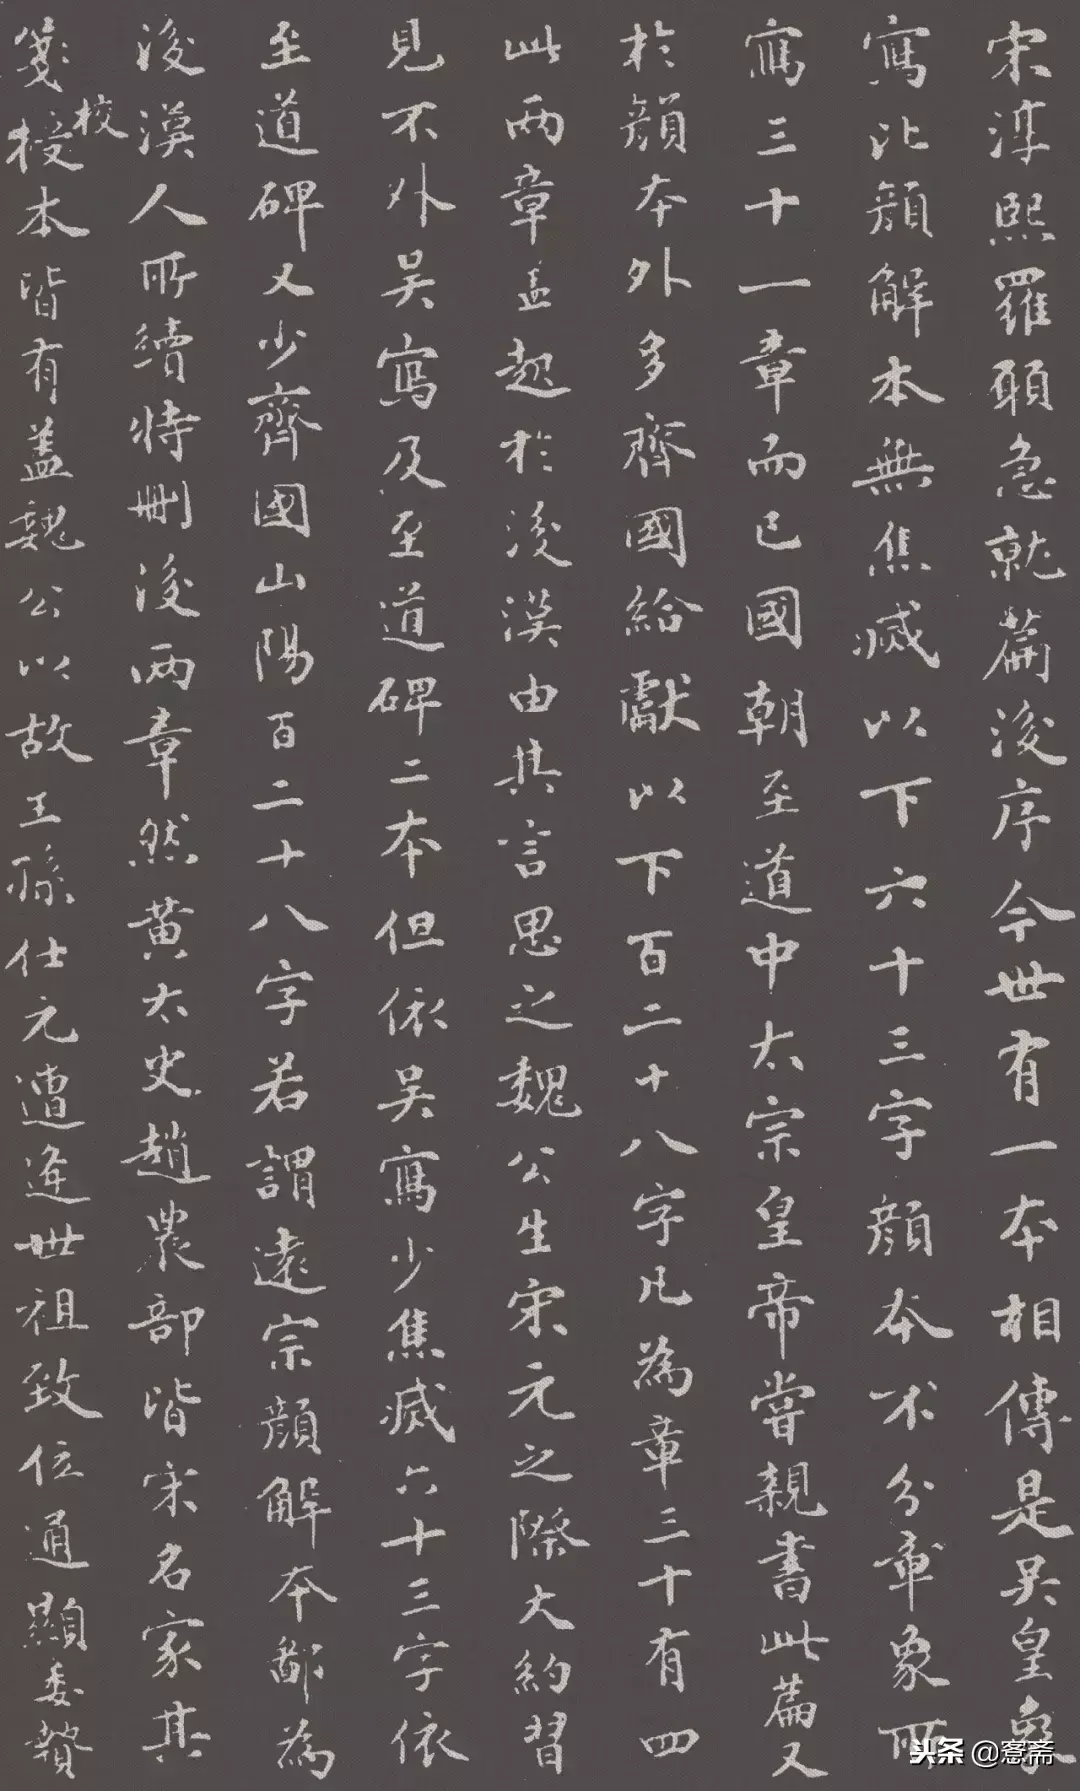 宋淳熙羅願急就篇後序今世有一本相傳是吳皇象
寫比顏解本無焦滅以下六十三字顏本不分章象所
寫三十一章而已國朝至道中太宗皇帝嘗親書此篇又
於顏本外多齊國給獻以下百二十八字凡為章三十有四
此兩章蓋起於後漢由其言思之魏公生宋元之際大約習
見不外吳寫及至道碑二本但依吳寫少焦滅六十三字依
至道碑又少齊國山陽百二十八字若謂遠宗顏解本鄙為
後漢人所續特刪後兩章然黃太史趙農部皆宋名家其
箋授本皆有蓋魏公以故王孫仕元遭逢世祖致位通顯委贄
校
头条 @窓斋